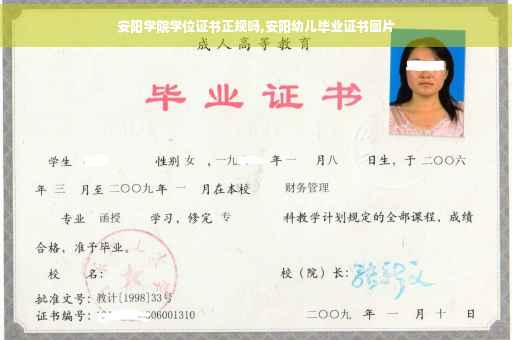 安阳学院学位证书正规吗,安阳幼儿毕业证书图片
成人高等教育
毕业证书
学生 性别 女 , 一九 年 一 月 八 日生，于 二〇〇六
年 三 月至 二〇〇九 年 一 月在本校 财务管理
专业 函授 学习，修完 专 科教学计划规定的全部课程，成绩
合格，准予毕业。
校 名： 校（院）长：
批准文号：教计[1998]33号
证书编号： 606001310 二〇〇九 年 一 月 十 日